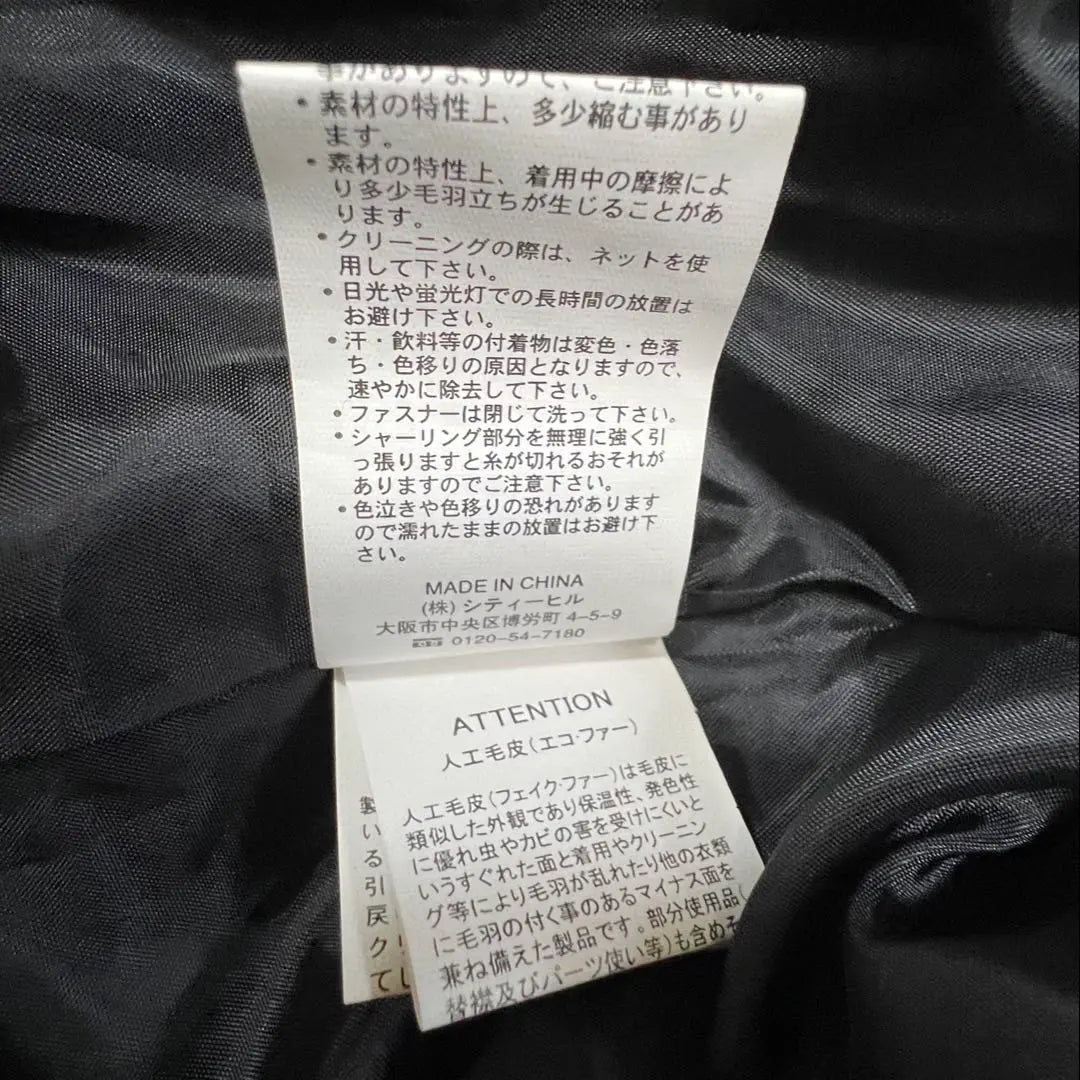 事がありますので、ご注意下さい。
・素材の特性上、多少縮む事があり
ます。
・素材の特性上、着用中の摩擦によ
り多少毛羽立ちが生じることがあ
ります。
・クリーニングの際は、ネットを使
用して下さい。
・日光や蛍光灯での長時間の放置は
お避け下さい。
・汗・飲料等の付着物は変色・色落
ち・色移りの原因となりますので、
速やかに除去して下さい。
・ファスナーは閉じて洗って下さい。
・シャーリング部分を無理に強く引
っ張りますと糸が切れるおそれが
ありますのでご注意下さい。
・色泣きや色移りの恐れがあります
ので濡れたままの放置はお避け下
さい。
MADE IN CHINA
(株)シティーヒル
大阪市中央区博労町 4-5-9
0120-54-7180
ATTENTION
人工毛皮(エコ・ファー)
人工毛皮(フェイク・ファー)は毛皮に
類似した外観であり保温性、発色性
に優れ虫やカビの害を受けにくいと
いうすぐれた面と着用やクリーニン
グ等により毛羽が乱れたり他の衣類
に毛羽の付く事のあるマイナス面を
兼ね備えた製品です。部分使用品(
替襟及びパーツ使い等)も含めそ
い
る
引
戻
ク
て